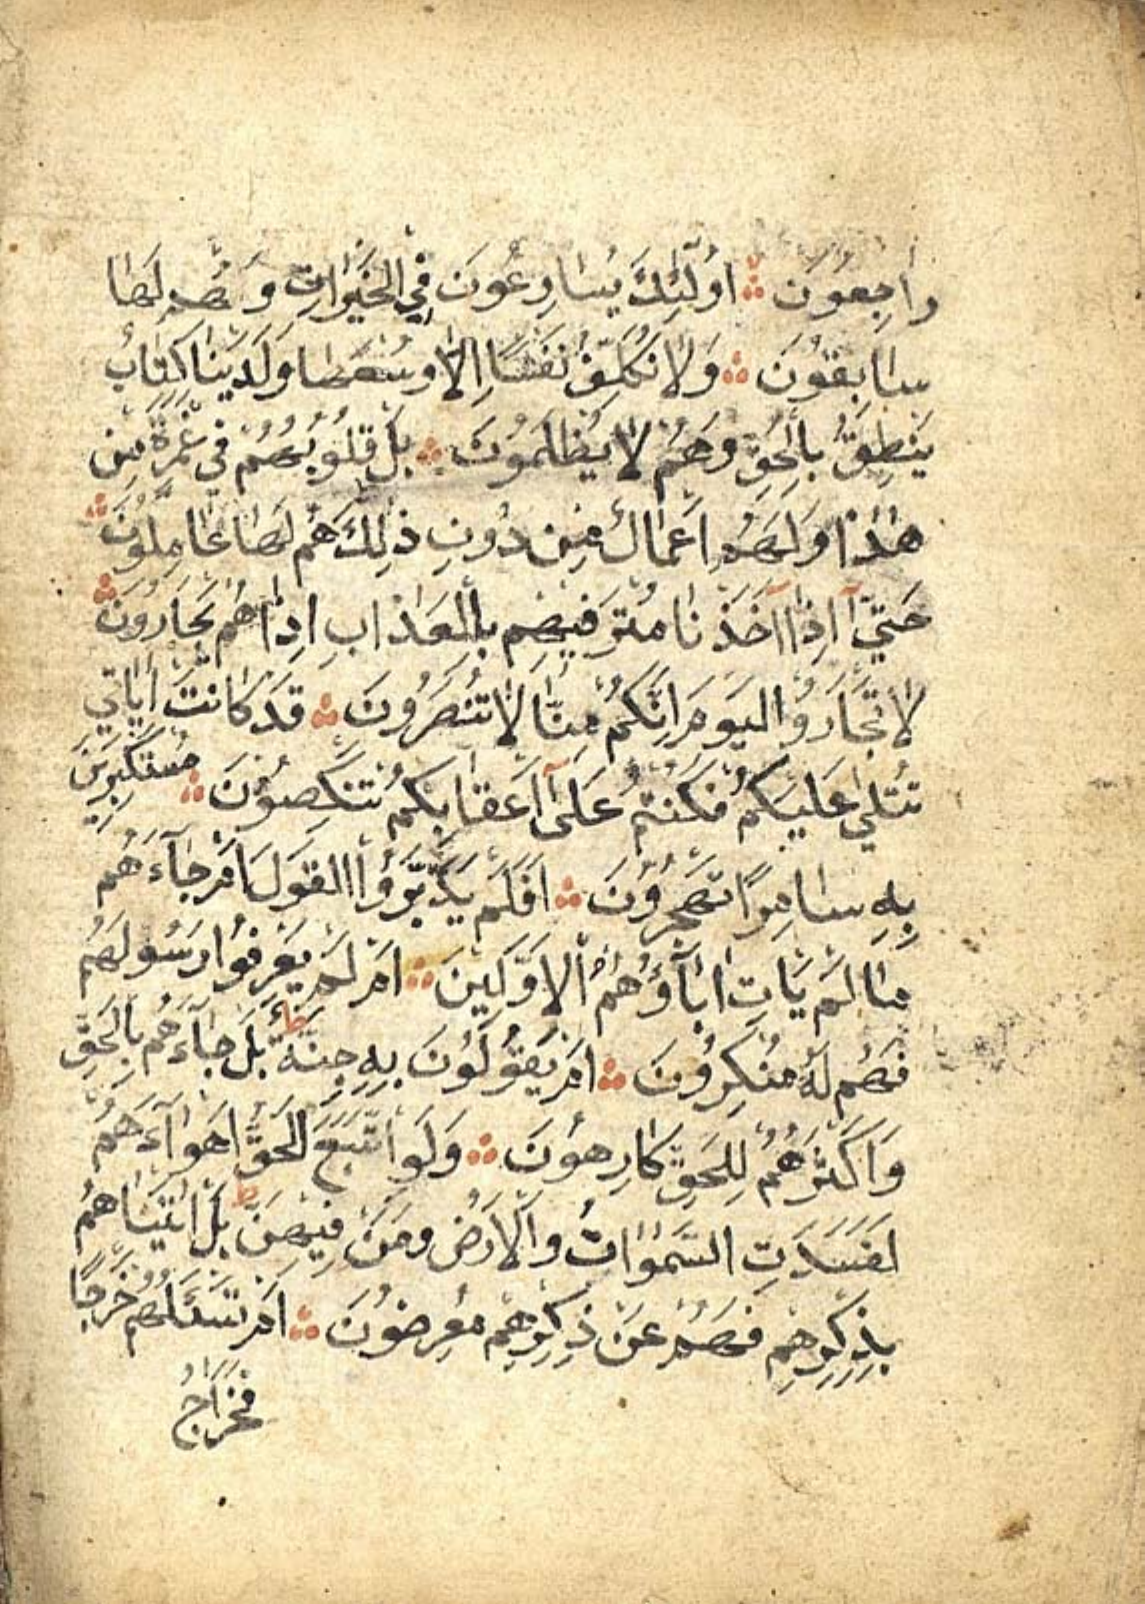 رَاجِعُونَ ۞ اُولٰٓئِكَ يُسَارِعُونَ فِي الْخَيْرَاتِ وَهُمْ لَهَا
سَابِقُونَ ۞ وَلَا نُكَلِّفُ نَفْسًا اِلَّا وُسْعَهَا وَلَدَيْنَا كِتَابٌ
يَنْطِقُ بِالْحَقِّ وَهُمْ لَا يُظْلَمُونَ ۞ بَلْ قُلُوبُهُمْ فِي غَمْرَةٍ مِنْ
هٰذَا وَلَهُمْ اَعْمَالٌ مِنْ دُونِ ذٰلِكَ هُمْ لَهَا عَامِلُونَ ۞
حَتّٰيٓ اِذَآ اَخَذْنَا مُتْرَفِيهِمْ بِالْعَذَابِ اِذَا هُمْ يَجْاَرُونَ ۞
لَا تَجْاَرُوا الْيَوْمَ اِنَّكُمْ مِنَّا لَا تُنْصَرُونَ ۞ قَدْ كَانَتْ اٰيَاتِي
تُتْلٰي عَلَيْكُمْ فَكُنْتُمْ عَلٰٓي اَعْقَابِكُمْ تَنْكِصُونَ ۞ مُسْتَكْبِرِينَ
بِهِ سَامِرًا تَهْجُرُونَ ۞ اَفَلَمْ يَدَّبَّرُوا الْقَوْلَ اَمْ جَآءَهُمْ
مَا لَمْ يَاْتِ اٰبَآؤَهُمُ الْاَوَّلِينَ ۞ اَمْ لَمْ يَعْرِفُوا رَسُولَهُمْ
فَهُمْ لَهُ مُنْكِرُونَ ۞ اَمْ يَقُولُونَ بِهِ جِنَّةٌ ط بَلْ جَآءَهُمْ بِالْحَقِّ
وَاَكْثَرُهُمْ لِلْحَقِّ كَارِهُونَ ۞ وَلَوِ اتَّبَعَ الْحَقُّ اَهْوَآءَهُمْ
لَفَسَدَتِ السَّمٰوَاتُ وَالْاَرْضُ وَمَنْ فِيهِنَّ ط بَلْ اَتَيْنَاهُمْ
بِذِكْرِهِمْ فَهُمْ عَنْ ذِكْرِهِمْ مُعْرِضُونَ ۞ اَمْ تَسْئَلُهُمْ خَرْجًا
فَخَرَاجُ